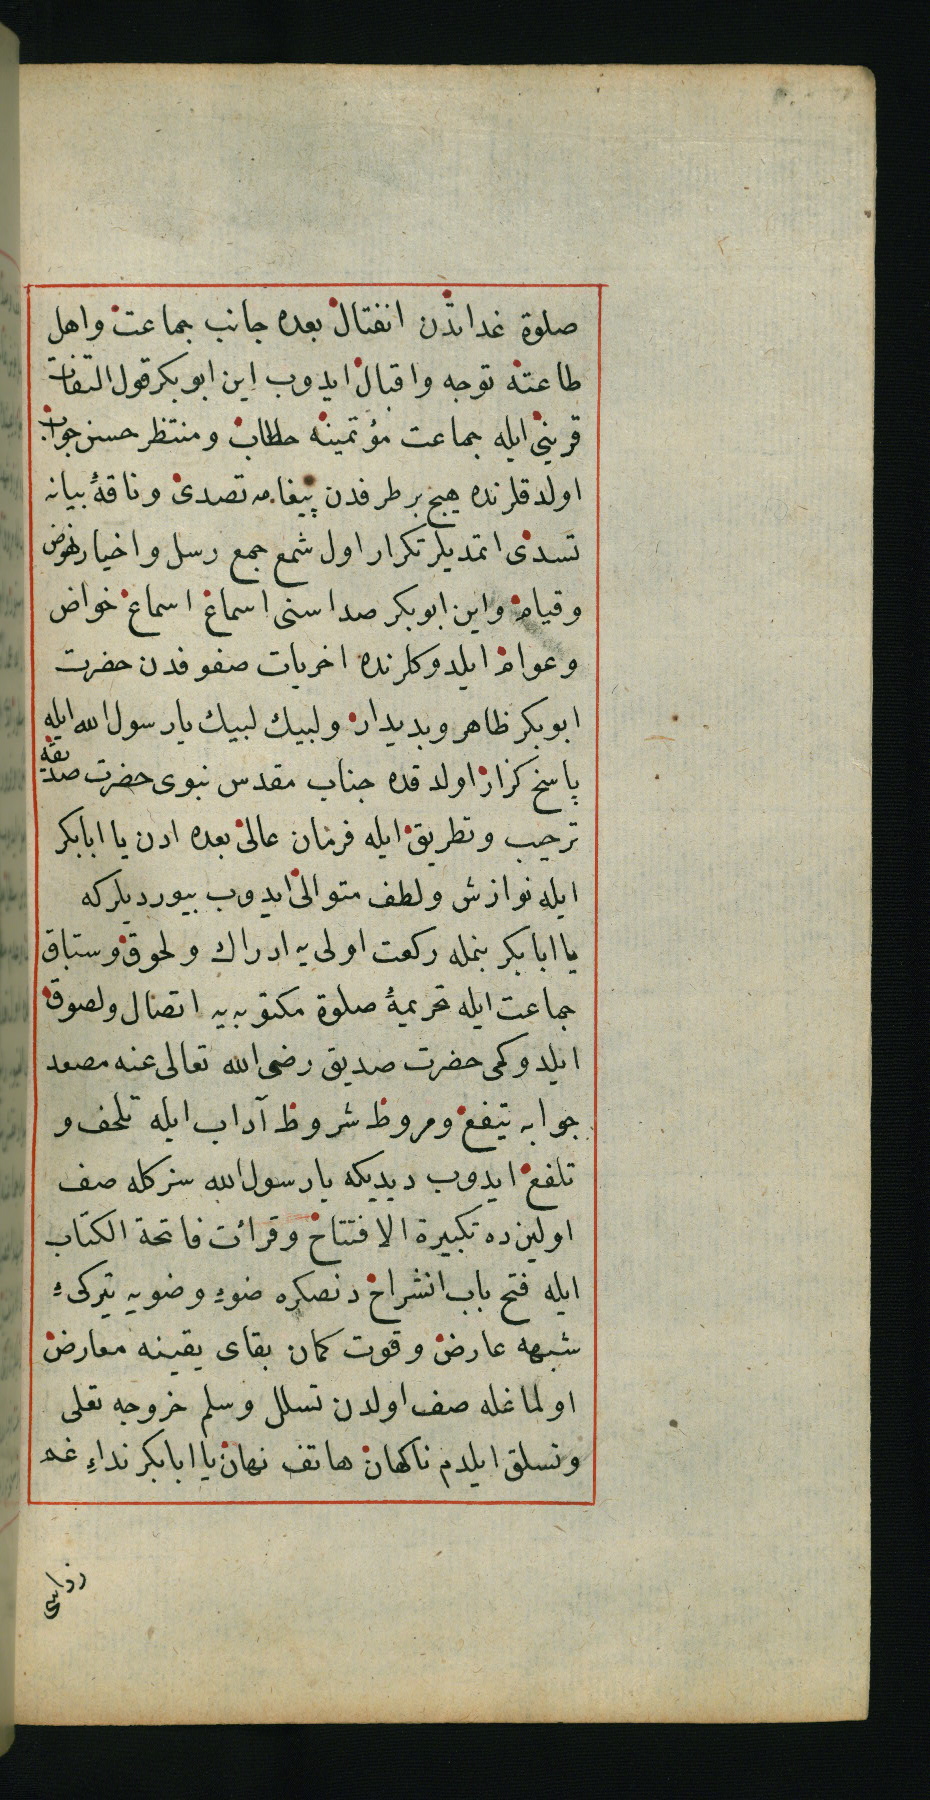 صلوة غداتدن انفتال بعده جانب جماعت واهل
طاعته توجه واقبال ايدوب اين ابوبكر قول التفات
قرينى ايله جماعت مؤتمينه خطاب ومنتظر حسن جواب
اولدقلرنده هيچ بر طرفدن پيغامه تصدى وناقۀ بيانه
تسدى اتمديلر تكرار اول شمع جمع رسل واخيار نهوض
وقيام واين ابوبكر صداسنى اسماغ اسماغ خواض
وعوام ايلدوكلرنده اخريات صفوفدن حضرت
ابوبكر ظاهر وبديدار ولبيك لبيك يارسول الله ايله
پاسخ كزار اولدقده جناب مقدس نبوى حضرت صديقه
ترحيب وتطريق ايله فرمان عالى بعده ادن يا ابابكر
ايله نوازش ولطف متوالى ايدوب بيورديلركه
يا ابابكر بنمله ركعت اولى يه ادراك ولحوق وستباق
جماعت ايله تحريمۀ صلوة مكتوبه يه اتصال ولصوق
ايلدوكمى حضرت صديق رضى الله تعالى عنه مصعد
جوابه تيفع ومروط شروط آداب ايله تلحف و
تلفع ايدوب ديديكه يارسول الله سزكله صف
اولين ده تكبيرة الافتتاح وقرائت فاتحة الكتاب
ايله فتح باب انشراح دنصكره ضوء وضويه تيركىء
شبهه عارض وقوت كمان بقاى يقينه معارض
اولماغله صف اولدن تسلل وسلم خروجه تعلى
وتسلق ايلدم ناكهان هاتف نهان يا ابابكر نداء غم
زداسى